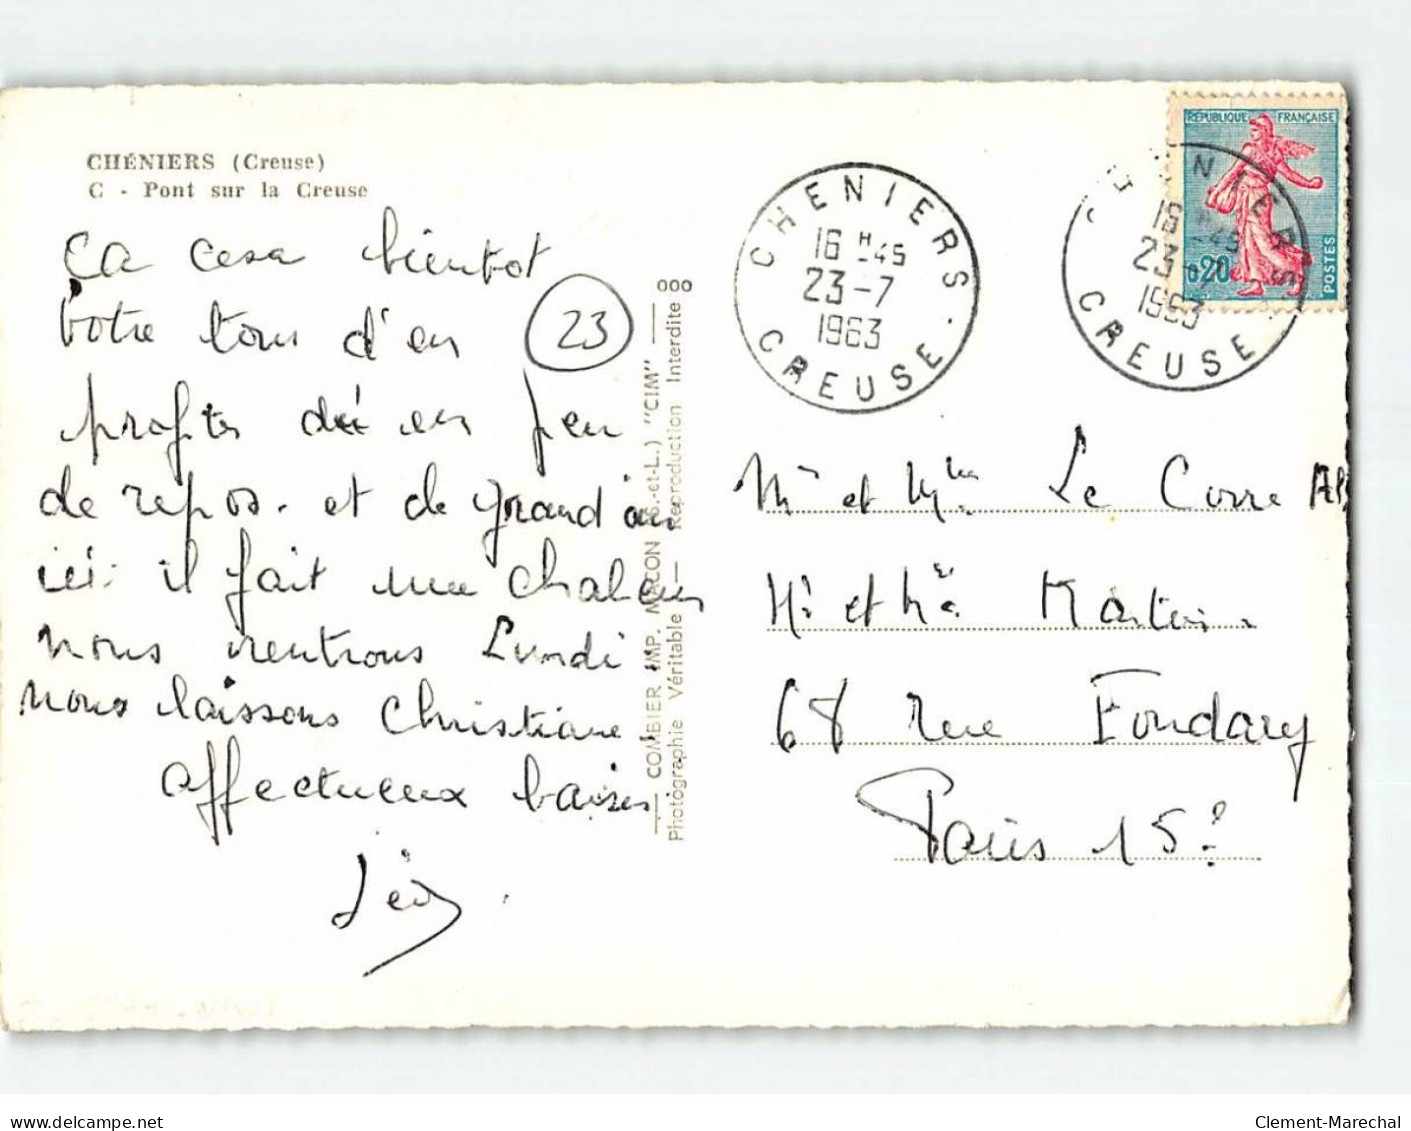 CHÉNIERS (Creuse)
C - Pont sur la Creuse
ça cera bientot
votre tour d'en
profiter un peu
de repos. et de grand air
ici il fait une chaleur
nous rentrons Lundi
nous laissons Christiane
affectueux baisers
23
000
COMBIER IMP. MACON (S.-et-L.) "CIM"
Photographie Véritable — Reproduction Interdite
CHENIERS
16 H 45
23-7
1963
CREUSE
REPUBLIQUE FRANÇAISE
0,20
POSTES
CHENIERS
16 H 45
23-7
1963
CREUSE
Mr et Mme Le Corre
Mr et Mme Martin
68 rue Fondary
Paris 15e
delcampe.net
Clement-Marechal